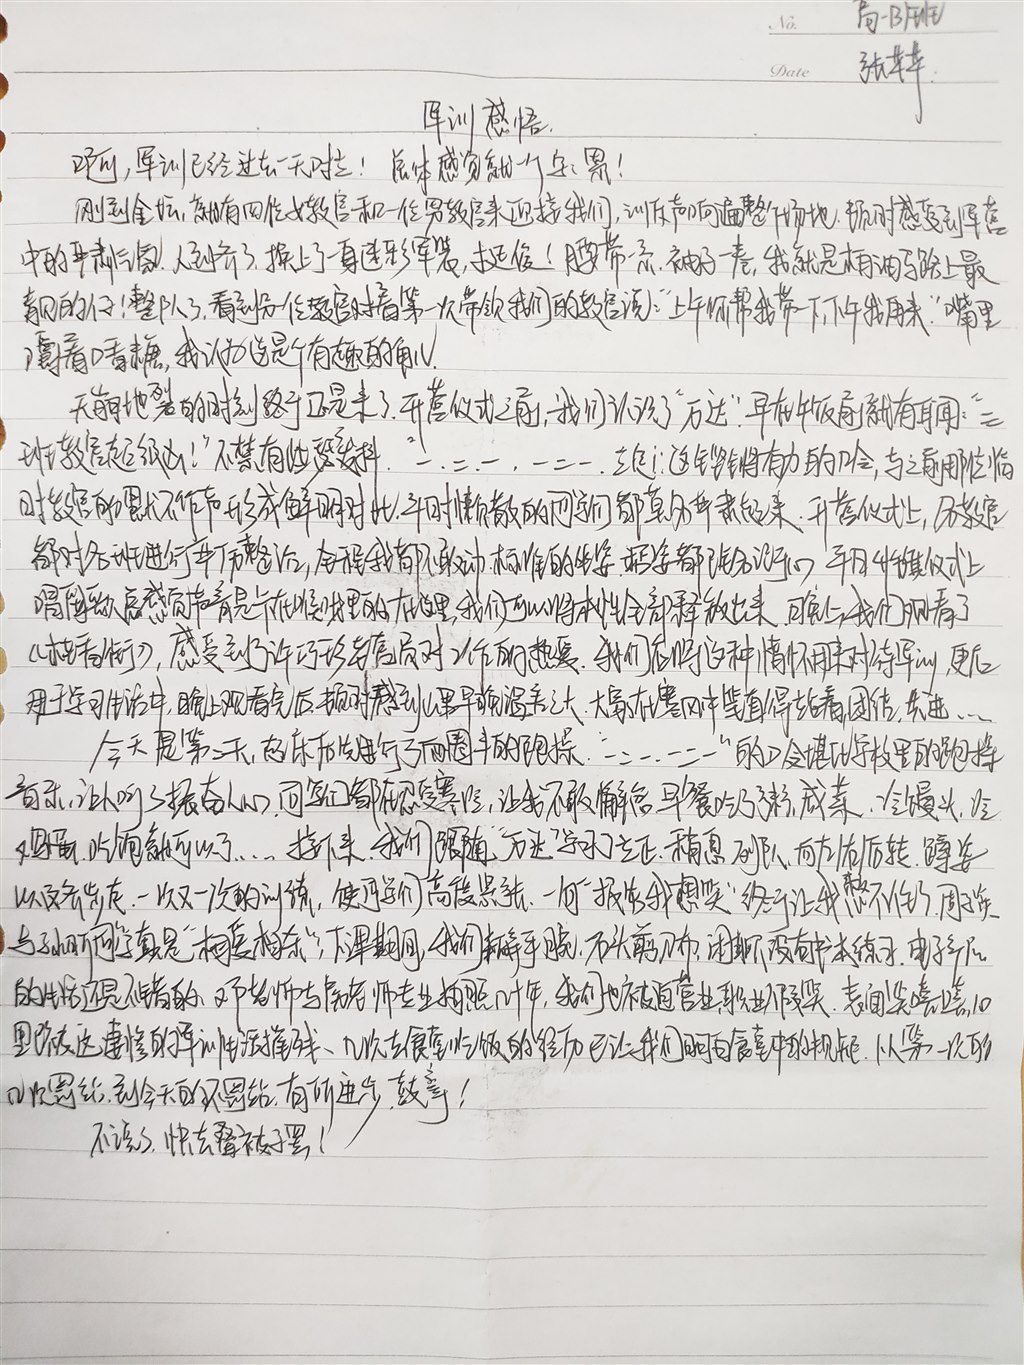 No.
高一B班
Date
张
军训感悟
啊，军训已经过去一天啦！总体感觉就一个字：累！
刚到金坛，就有四位女教官和一位男教官来迎接我们，训斥声响遍整个场地，顿时感受到军营
中的严肃气氛。人到齐了，换上了一身迷彩军装，挺俊！腰带一系，袖子一卷，我就是柏油马路上最
靓的仔！整队了，看到另一位教官对着第一次带领我们的教官说："上午你帮我带一下，下午我再来"嘴里
嚼着口香糖，我认为这是个有趣的角儿。
天崩地裂的时刻终于还是来了，开营仪式之前，我们认识了"万达"，早在午饭前就有耳闻："二
班教官超级凶！"不禁有些 "一.二.一，一二一，立定！"这铿锵有力的口令，与之前那位临
时教官的默不作声形成鲜明对比，平时懒散的同学们都莫名严肃起来。开营仪式上，另教官
都对各班进行严厉整治，全程我都不敢动，标准的坐姿、站姿都 平日升旗仪式上
唱国歌总感觉声音是卡在喉咙里的，在这里，我们可以将本性全部释放出来。晚上，我们观看了
，感受到了许巧珍 对工作的热爱，我们应将这种情怀用来对待军训，更应
用于学习生活中，晚上观看完后，顿时感到 温差之大，大家在寒风中 值得 着，团结，共进……
今天是第二天，起床后先进行了两圈半的跑操，"一二……一二一"的口令堪比学校里的跑操
音乐，让人听了振奋人心，同学们都在忍受寒冷，让我不敢懈怠，早餐吃了粥，咸菜，冷馒头，冷
，吃饱就可以了……接下来，我们跟随"万达"学习了立正、稍息、列队、向左右后转、蹲姿
以及齐步走，一次又一次的训练，使同学们高度紧张，一句"报告我想笑"终于让我憋不住了，周
与 同学真是"相爱相杀"，下课期间，我们掰手腕，石头剪刀布，闭 没有书本练习，电子产品
的生活还是不错的。邓老师与 老师专业拍照几十年，我们也被迫营业职业假笑，表面笑嘻嘻，心
里 被这凄惨的军训生活摧残。几次去食堂吃饭的经历已让我们明白食堂中的规矩，从第一次的
几次罚站，到今天的不罚站，有所进步，鼓掌！
不说了，快去叠被子罢！